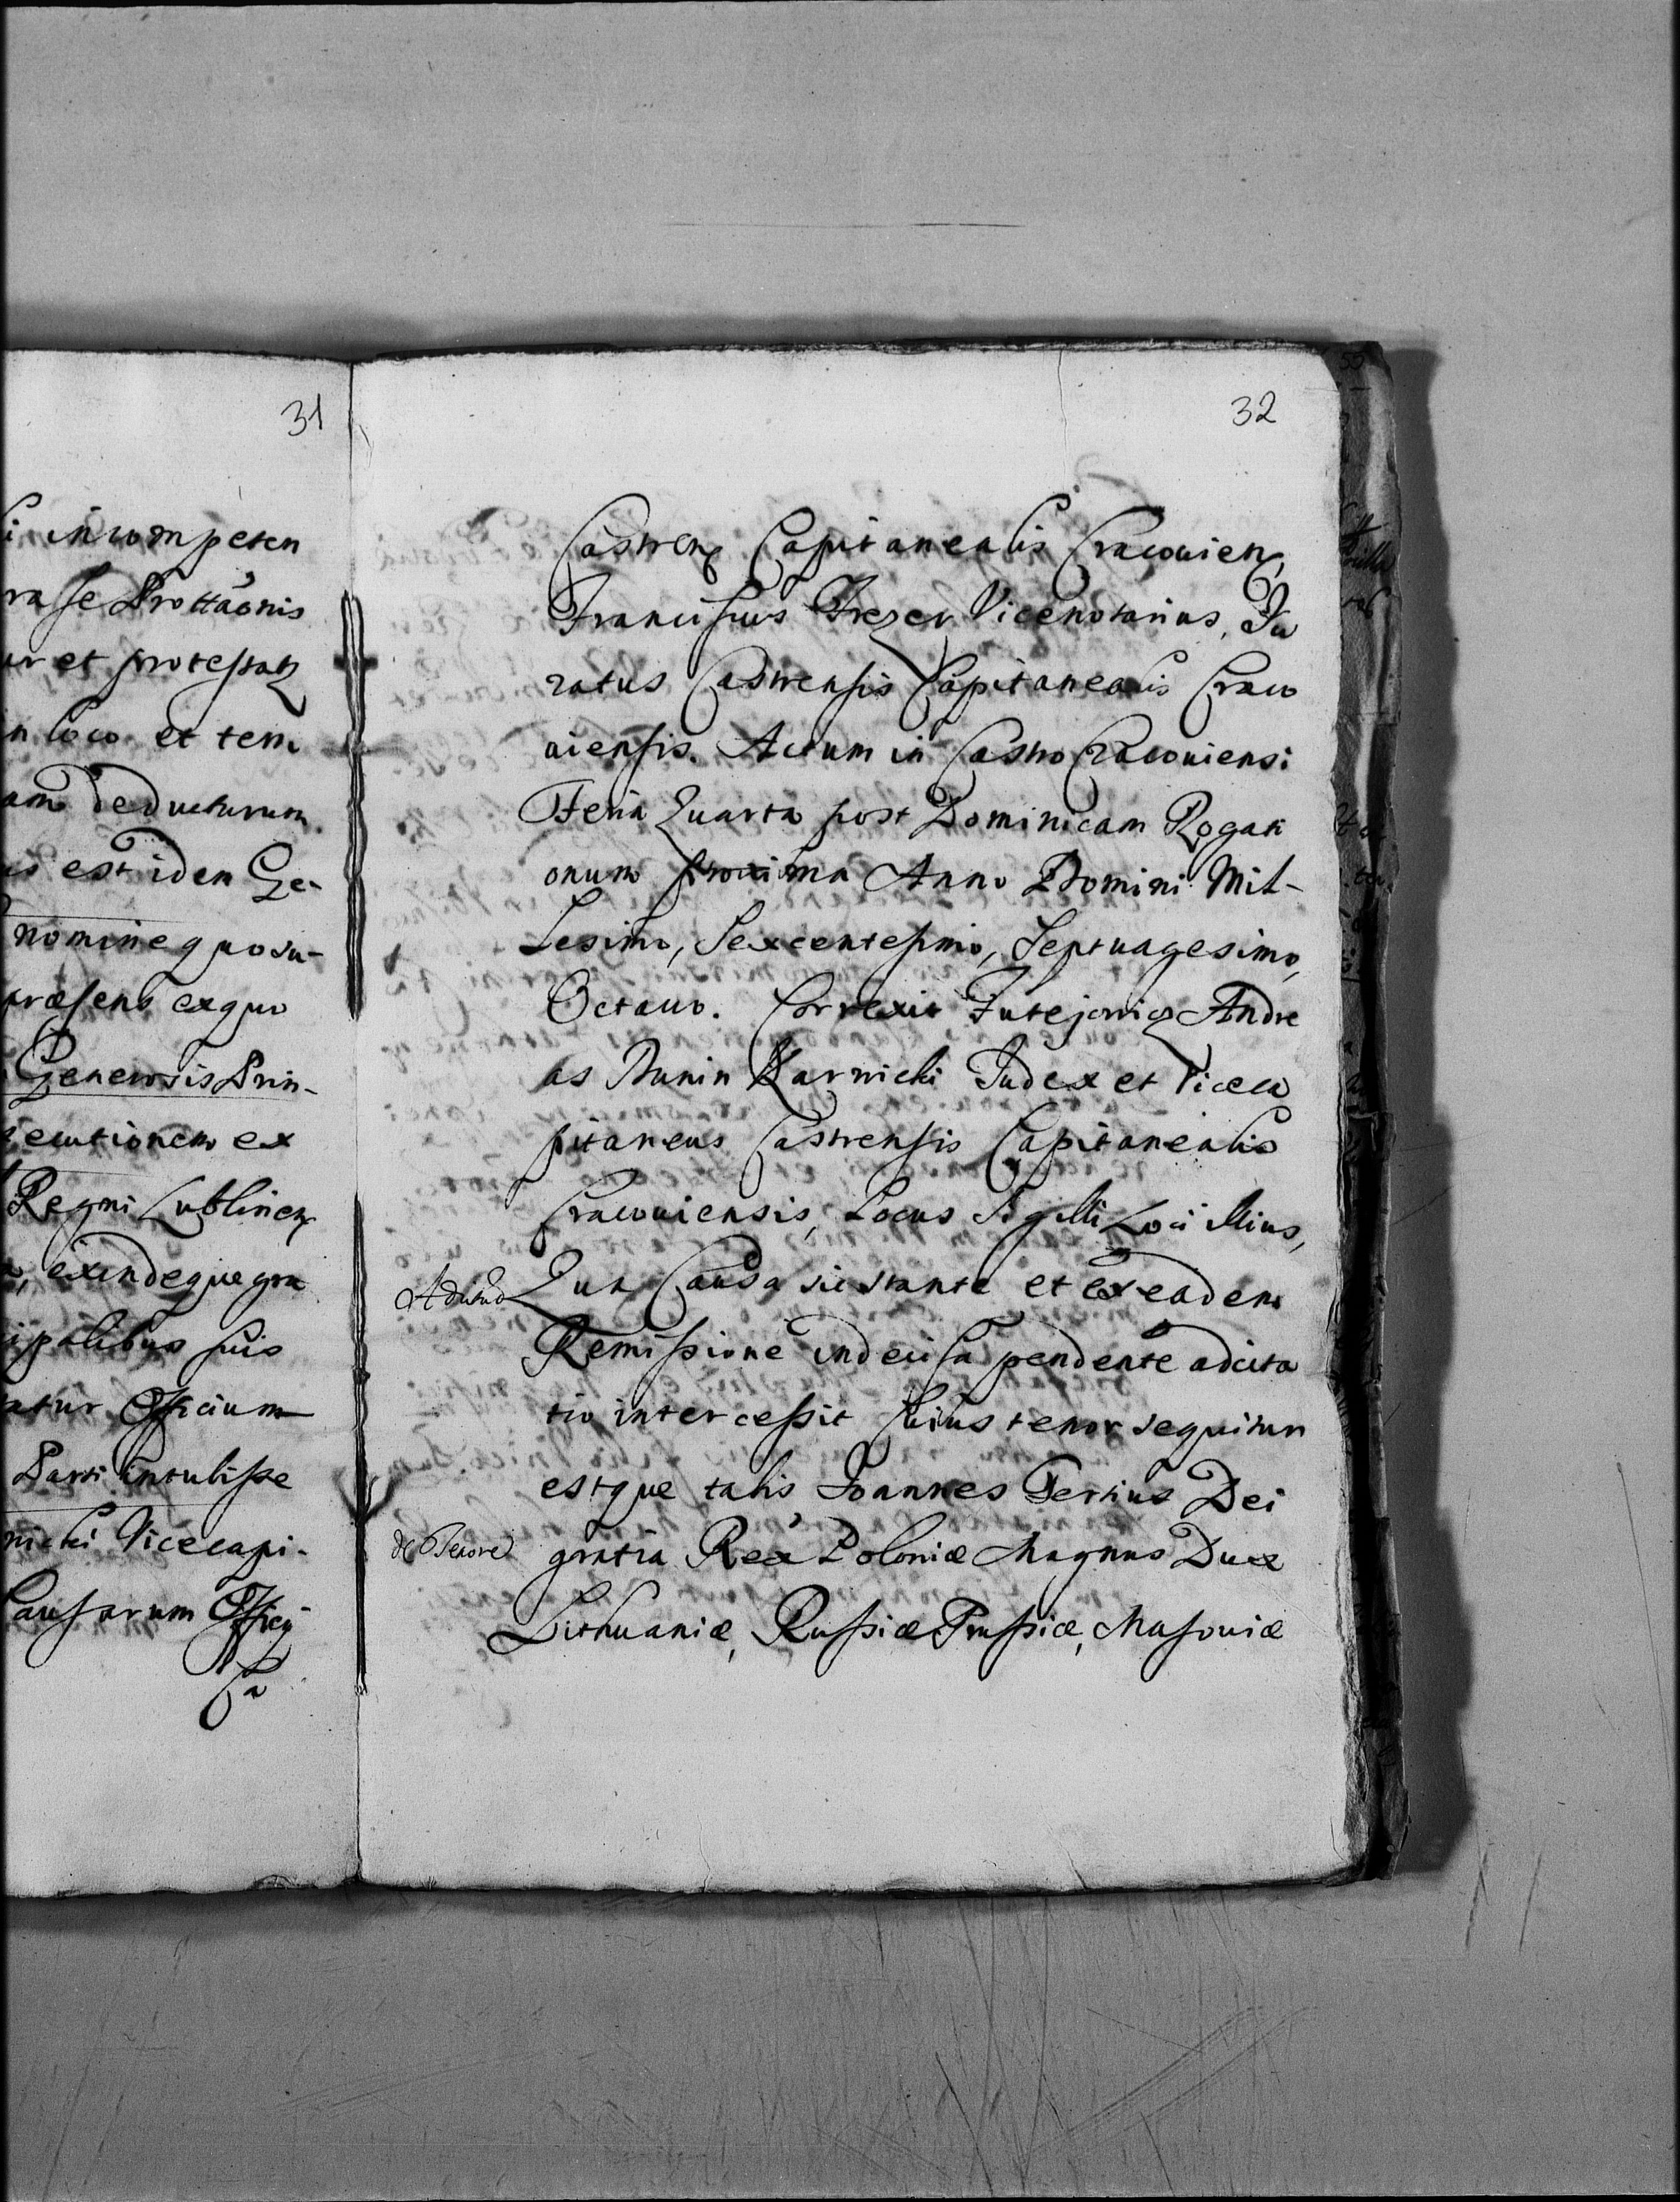 31
i incompeten
rasse Prottaonis
ur et protestatq
n loco et tem
am deducturum
est iden Ge-
nomine quo su-
præsens ex quo
Generosis Prin-
ecutionem ex
Regni Lublinen
exindeque gra
ipalibus suis
atur Officium
Parti intulisse
nicki Vicecapi-
Causarum Officy
Ca
32
Castren Capitanealis Cracouien,
Franciscus Frezer Vicenotarius, Ju
ratus Castrensis Capitanealis Craco
uiensis. Actum in Castro Cracouiensi
Feria Quarta post Dominicam Rogati
onum proxima Anno Domini Mil-
Lesimo, Sexcentesimo, Septuagesimo,
Octauo. Correxit Andre
as Bunin Karnicki Judex et Viceca
pitaneus Castrensis Capitanealis
Cracouiensis, Locus Sigilli Loci illius,
Qua Causa sic stante et ex eadem
Remissione indecisa pendente adcita
tio intercessit cuius tenor sequitur
estque talis Joannes Tertius Dei
de Tenore gratia Rex Poloniæ Magnus Dux
Lithuaniæ, Russiæ Prussiæ, Masouiæ